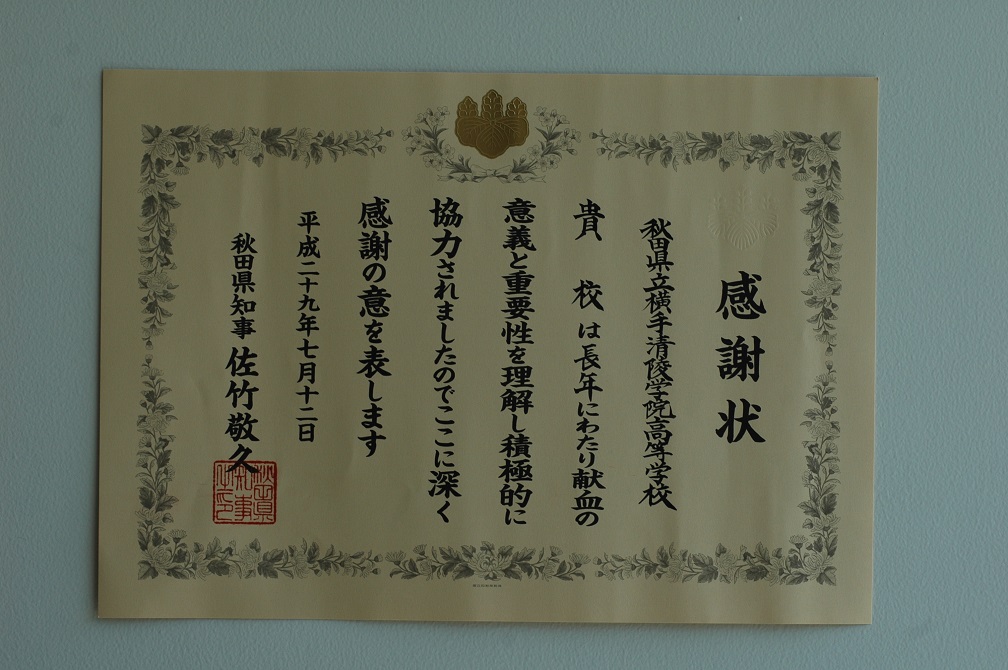 感謝状
秋田県立横手清陵学院高等学校
貴校は長年にわたり献血の
意義と重要性を理解し積極的に
協力されましたのでここに深く
感謝の意を表します
平成二十九年七月十二日
秋田県知事 佐竹敬久
秋田県
知事
之印